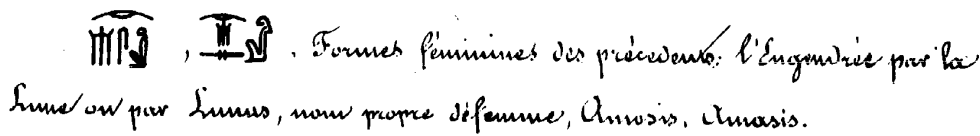 𓇹𓄟𓋴𓁐, 𓇹𓄟𓁐. Formes féminines des précédents; l'Engendrée par la
Lune ou par Lunus, nom propre de femme, Amosis, Amasis.